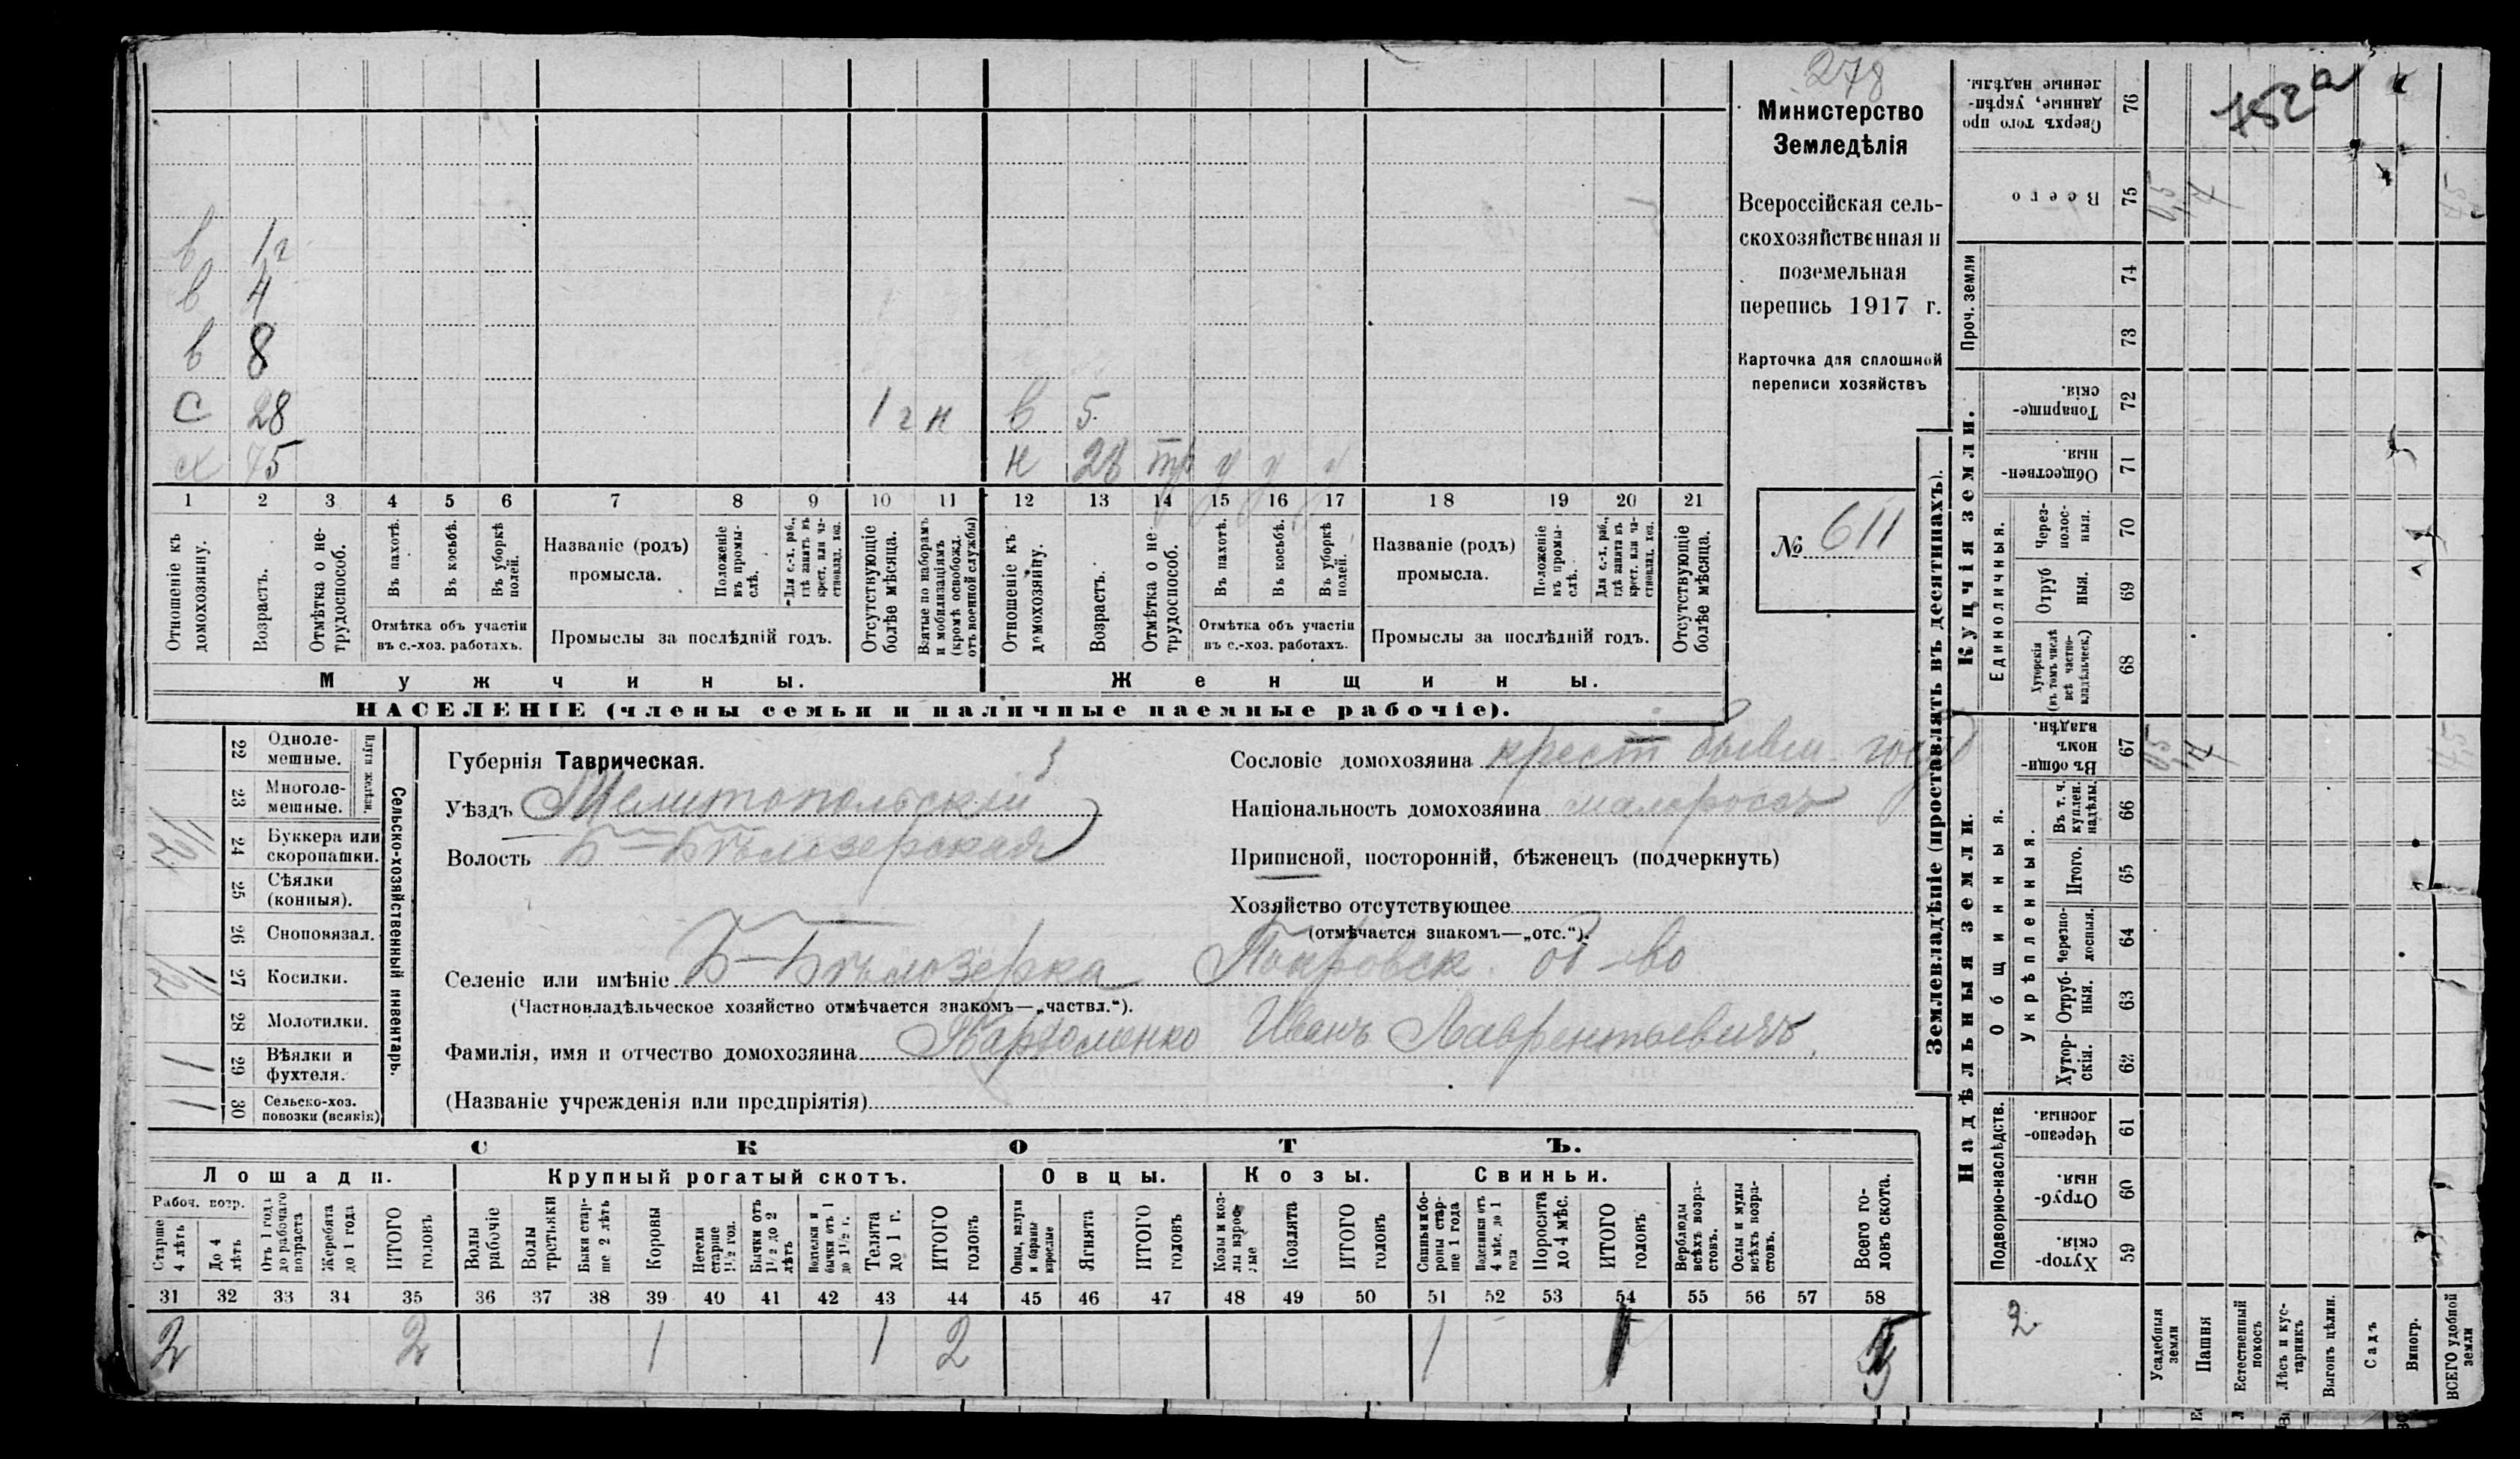 278
Министерство
Земледѣлія
Всероссійская сель-
скохозяйственная и
поземельная
перепись 1917 г.
Карточка для сплошной
переписи хозяйствъ
№ 611
в 1 г
в 4
в 8
с 28 1 г н в 5
х 75 н 28 тр у у у
1 2 3 4 5 6 7 8 9 10 11 12 13 14 15 16 17 18 19 20 21
Отношеніе къ домохозяину.
Возрастъ.
Отмѣтка о не-трудоспособ.
Въ пахотѣ.
Въ косьбѣ.
Въ уборкѣ полей.
Отмѣтка объ участіи
въ с.-хоз. работахъ.
Названіе (родъ)
промысла.
Положеніе въ промы-слѣ.
Для с.-х. раб., гдѣ занятъ въ крест. или ча-стновлад. хоз.
Промыслы за послѣдній годъ.
Отсутствующіе болѣе мѣсяца.
Взятые по наборамъ и мобилизаціямъ (кромѣ освобожд. отъ военной службы)
Отношеніе къ домохозяину.
Возрастъ.
Отмѣтка о не трудоспособ.
Въ пахотѣ.
Въ косьбѣ.
Въ уборкѣ полей.
Отмѣтка объ участіи
въ с.-хоз. работахъ.
Названіе (родъ)
промысла.
Положеніе въ промы-слѣ.
Для с.-х. раб., гдѣ занята въ крест. или ча-стновлад. хоз.
Промыслы за послѣдній годъ.
Отсутствующіе болѣе мѣсяца.
Мужчины.
Женщины.
НАСЕЛЕНІЕ (члены семьи и наличные наемные рабочіе).
Сельско-хозяйственный инвентарь.
22 Одноле-мешные.
23 Многоле-мешные.
24 Буккера или скоропашки.
25 Сѣялки (конныя).
26 Сноповязал.
27 Косилки.
28 Молотилки.
29 Вѣялки и фухтеля. 1
30 Сельско-хоз. повозки (всякія) 1
Губернія Таврическая.
Уѣздъ Мелитопольскій
Волость Б-Бѣлозерская
Сословіе домохозяина крест бывш. госуд
Національность домохозяина малороссъ
Приписной, посторонній, бѣженецъ (подчеркнуть)
Хозяйство отсутствующее
(отмѣчается знакомъ—„отс.“).
Селеніе или имѣніе Б-Бѣлозерка Покровск. об-во
(Частновладѣльческое хозяйство отмѣчается знакомъ—„частвл.“).
Фамилія, имя и отчество домохозяина Иванъ Лаврентьевичъ
(Названіе учрежденія или предпріятія)
СКОТЪ.
Лошади.
Крупный рогатый скотъ.
Овцы.
Козы.
Свиньи.
Рабоч. возр.
Старше 4 лѣтъ
До 4 лѣтъ
Отъ 1 года до рабочаго возраста
Жеребята до 1 года
ИТОГО головъ
Волы рабочіе
Волы третьяки
Быки стар-ше 2 лѣтъ
Коровы
Нетели старше 1½ год.
Бычки отъ 1½ до 2 лѣтъ
Телята до 1 г.
ИТОГО головъ
Овцы, валухи и бараны взрослые
Ягнята
ИТОГО головъ
Козы и коз-лы взрос-лые
Козлята
ИТОГО головъ
Свиньи и бо-ровы стар-ше 1 года
Подсвинки отъ 4 мѣс. до 1 года
Поросята до 4 мѣс.
ИТОГО головъ
Верблюды всѣхъ возра-стовъ.
Ослы и мулы всѣхъ возра-стовъ.
Всего го-ловъ скота.
31 32 33 34 35 36 37 38 39 40 41 42 43 44 45 46 47 48 49 50 51 52 53 54 55 56 57 58
2 2 1 1 2 1 1 5
Землевладѣніе (проставлять въ десятинахъ).
782а
76 Сверхъ того про данные, укрѣп-ленные надѣлы.
75 Всего
Проч. земли
74
73
Купчія земли.
72 Товарище-скія.
71 Обществен-ныя.
Единоличныя.
70 Через-полос-ныя.
69 Отруб ныя.
68 Хуторскія (въ томъ числѣ всѣ частно-владѣльческ.)
Надѣльныя земли.
Общинныя.
67 Въ общи-номъ владѣн.
Укрѣпленныя.
66 Въ т. ч. куплен. надѣлы.
65 Итого.
64 Черезпо-лосныя.
63 Отруб-ныя.
62 Хутор-скія.
Подворно-наслѣдств.
61 Черезпо-лосныя.
60 Отруб-ныя.
59 Хутор-скія.
2
Усадебныя земли
Пашня
Естественный покосъ
Лѣсъ и кус-тарникъ
Выгонъ цѣлин.
Садъ
Виногр.
ВСЕГО удобной земли